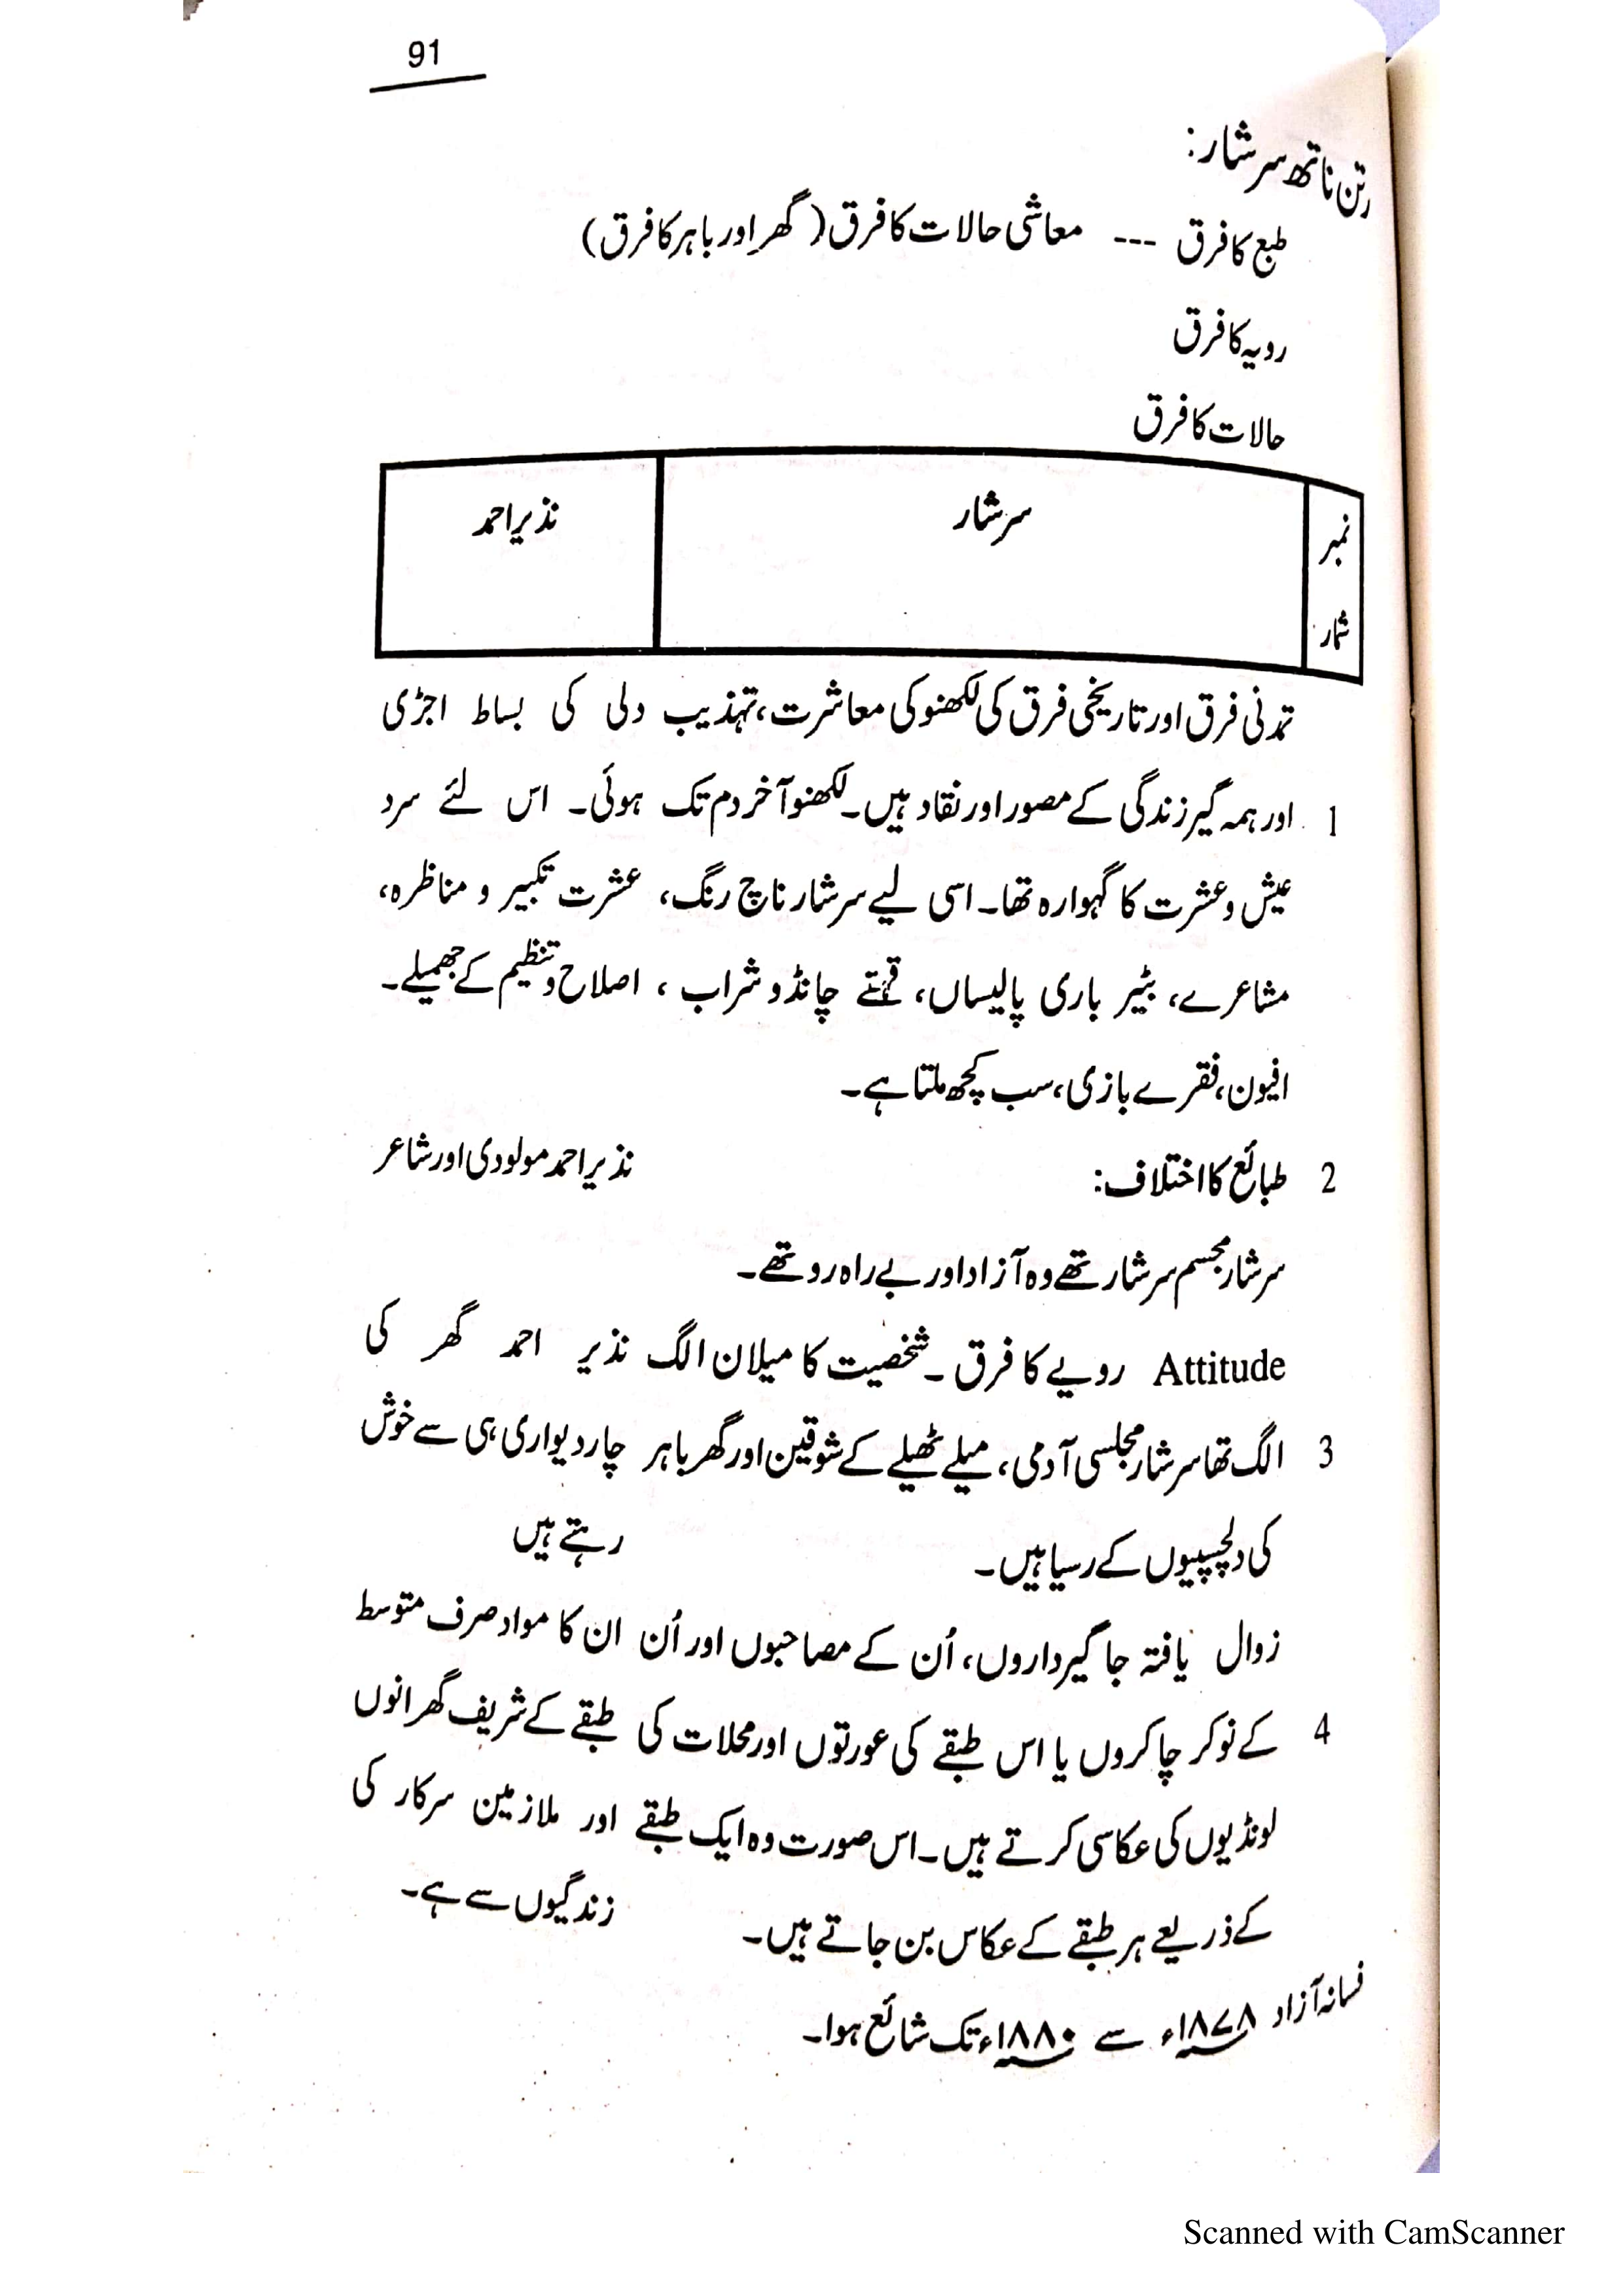 91
رتن ناتھ سرشار:
طبع کا فرق --- معاشی حالات کا فرق (گھر اور باہر کا فرق)
رویہ کا فرق
حالات کا فرق
نمبر شمار سرشار نذیر احمد
تمدنی فرق اور تاریخی فرق کی لکھنو کی معاشرت، تہذیب دلی کی بساط اجڑی
1 اور ہمہ گیر زندگی کے مصور اور نقاد ہیں۔ لکھنو آخر دم تک ہوئی۔ اس لئے سرد
عیش و عشرت کا گہوارہ تھا۔ اسی لیے سرشار ناچ رنگ، عشرت تکبیر و مناظرہ،
مشاعرے، بٹیر باری پالیساں، قہتے چانڈو شراب، اصلاح و تنظیم کے جھمیلے۔
افیون، فقرے بازی، سب کچھ ملتا ہے۔
2 طبائع کا اختلاف: نذیر احمد مولودی اور شاعر
سرشار مجسم سرشار تھے وہ آزاد اور بے راہ رو تھے۔
Attitude رویے کا فرق ۔ شخصیت کا میلان الگ نذیر احمد گھر کی
3 الگ تھا سرشار مجلسی آدمی، میلے ٹھیلے کے شوقین اور گھر باہر چار دیواری ہی سے خوش
کی دلچسپیوں کے رسیا ہیں۔ رہتے ہیں
زوال یافتہ جاگیرداروں، اُن کے مصاحبوں اور اُن ان کا مواد صرف متوسط
4 کے نوکر چاکروں یا اس طبقے کی عورتوں اور محلات کی طبقے کے شریف گھرانوں
لونڈیوں کی عکاسی کرتے ہیں۔ اس صورت وہ ایک طبقے اور ملازمین سرکار کی
کے ذریعے ہر طبقے کے عکاس بن جاتے ہیں۔ زندگیوں سے ہے۔
فسانہ آزاد ۱۸۷۸ء سے ۱۸۸۰ء تک شائع ہوا۔
Scanned with CamScanner